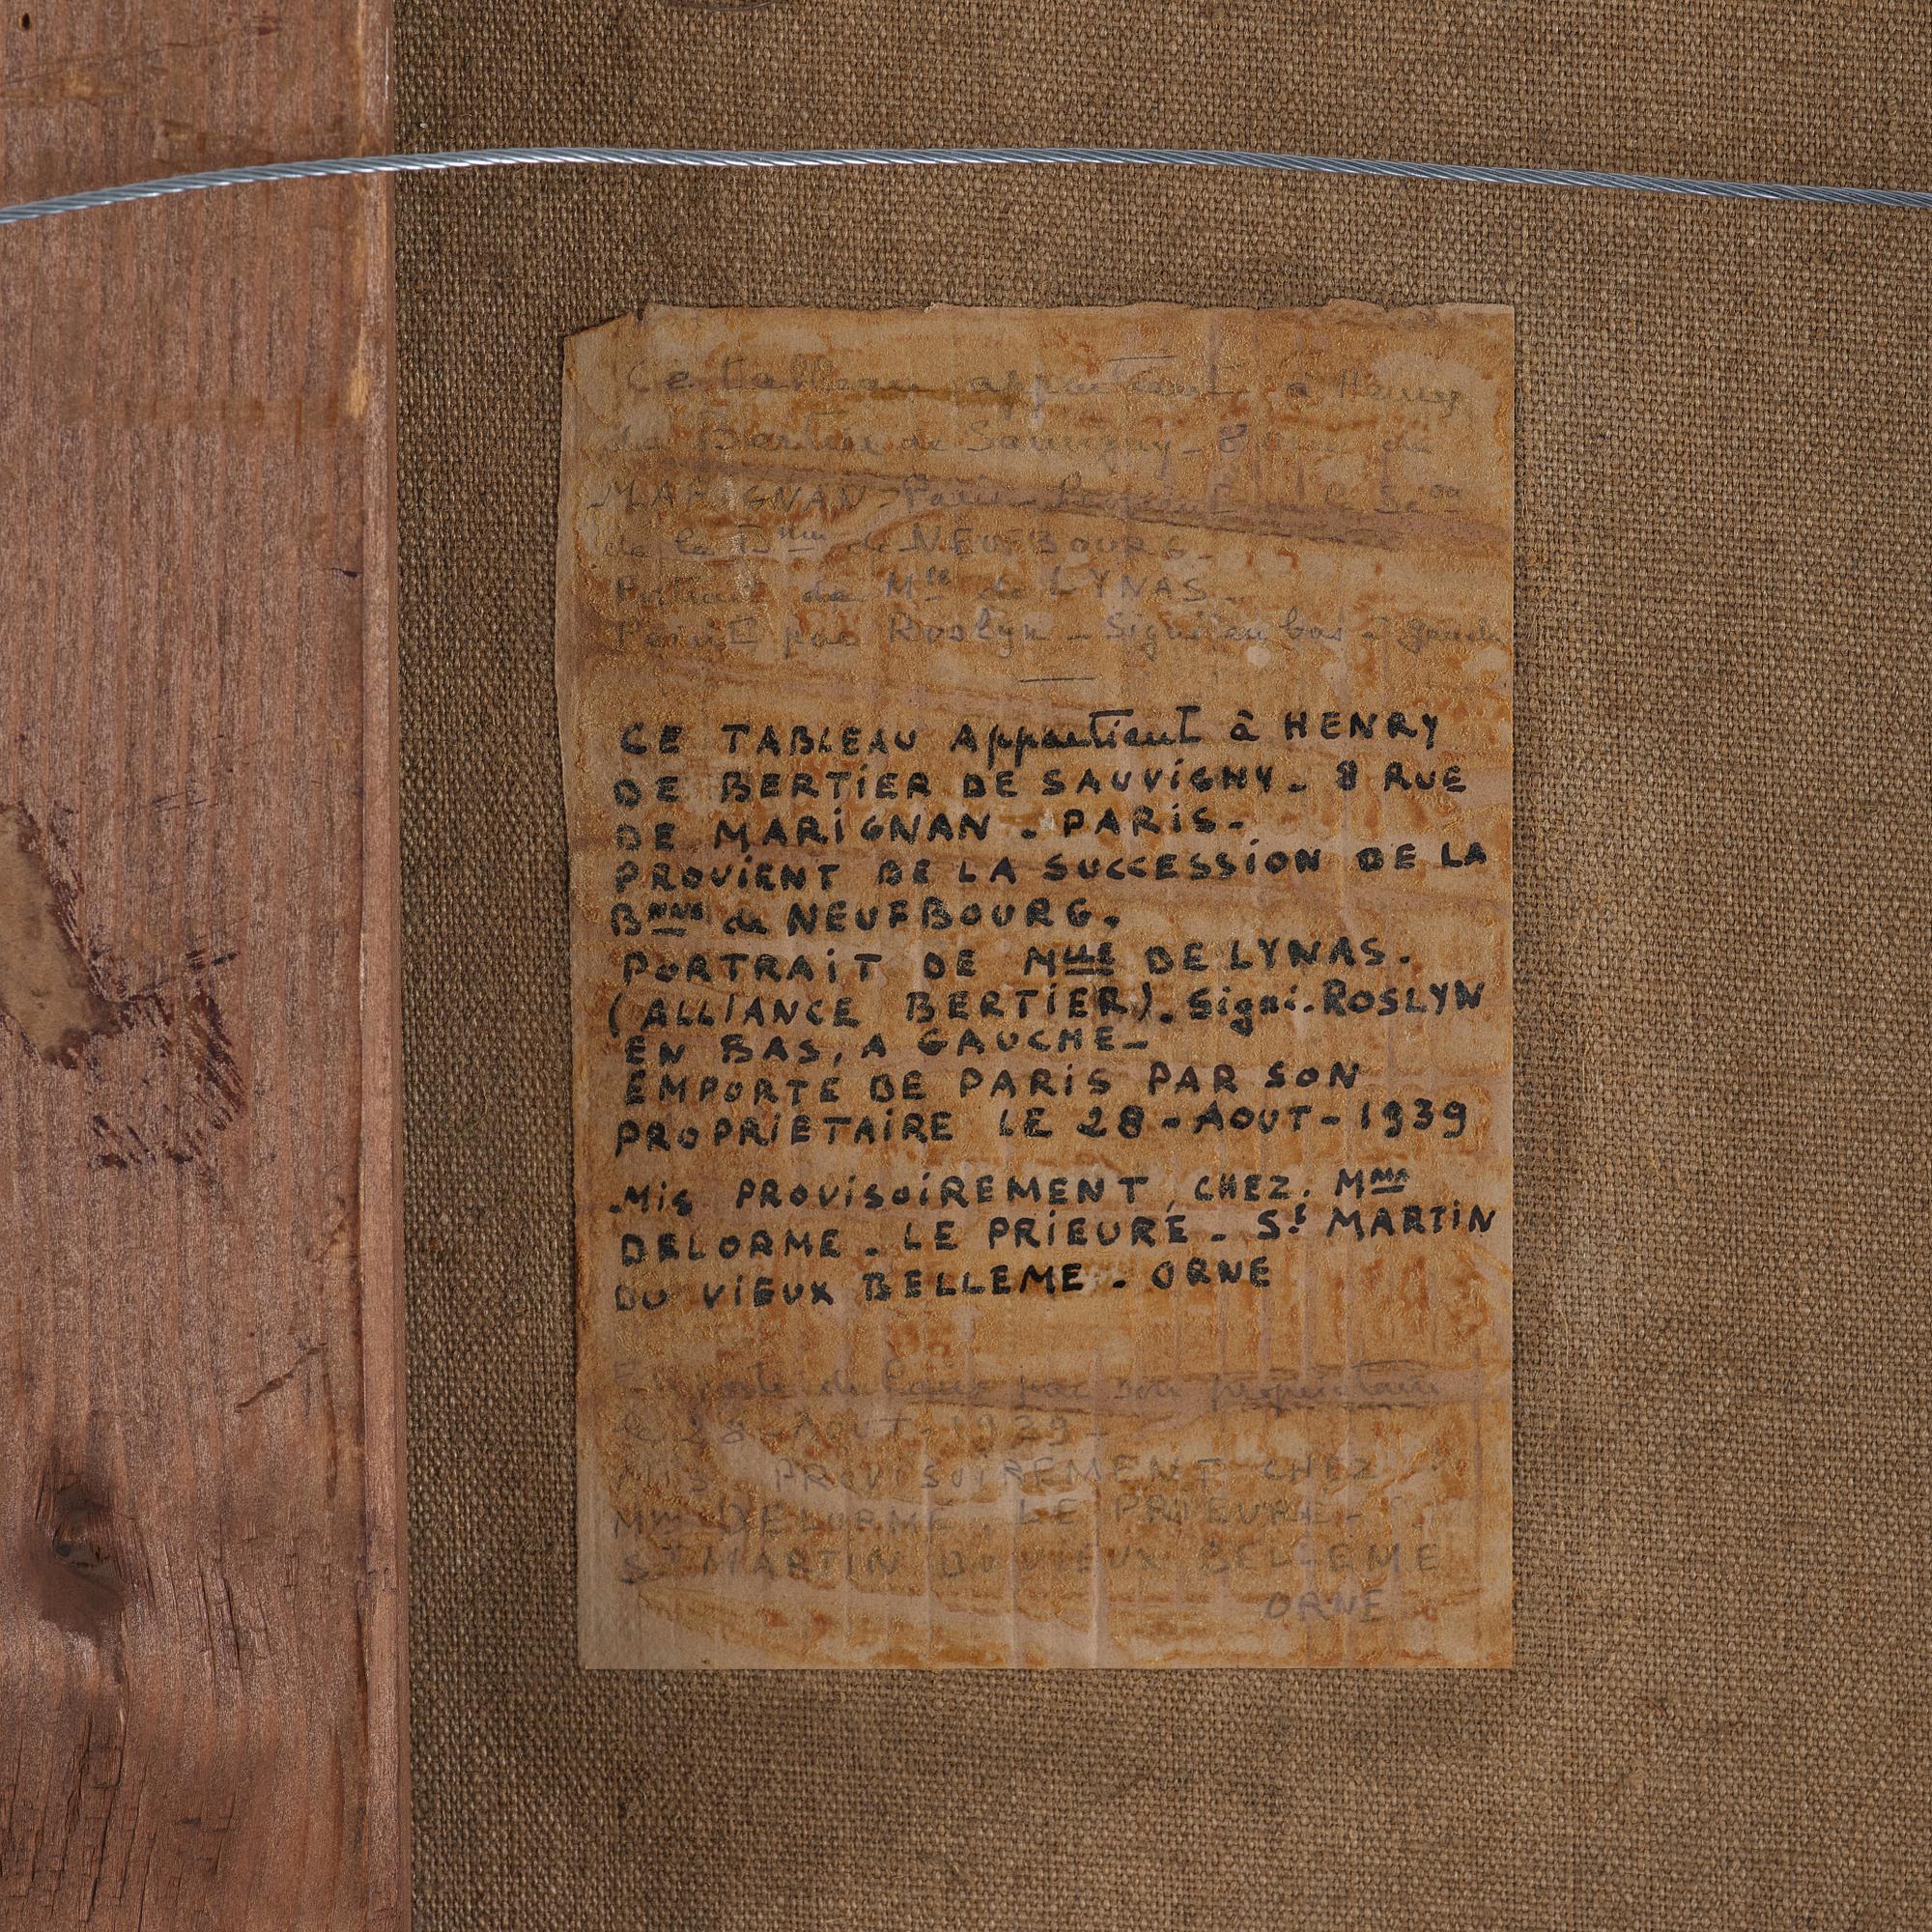 Ce tableau appartient à Henry
de Bertier de Sauvigny - 8 rue de
MARIGNAN - Paris - Provient de la Sc^on
de la B^nne de NEUFBOURG -
Portrait de M^lle de LYNAS -
Peint par Roslyn - Signé en bas à gauche
CE TABLEAU Appartient à HENRY
DE BERTIER DE SAUVIGNY - 8 RUE
DE MARIGNAN - PARIS -
PROVIENT DE LA SUCCESSION DE LA
B^NNE de NEUFBOURG.
PORTRAIT DE M^LLE DE LYNAS.
(ALLIANCE BERTIER). Signé. ROSLYN
EN BAS, A GAUCHE -
EMPORTE DE PARIS PAR SON
PROPRIETAIRE LE 28 - AOUT - 1939
MIS PROVISOIREMENT, CHEZ. M^ME
DELORME - LE PRIEURÉ - S^t MARTIN
DU VIEUX BELLEME - ORNE
Emporté de Paris par son propriétaire
le 28 - AOUT - 1939 -
MIS PROVISOIREMENT CHEZ
M^me DELORME - LE PRIEURE -
S^T MARTIN DU VIEUX BELLEME
ORNE